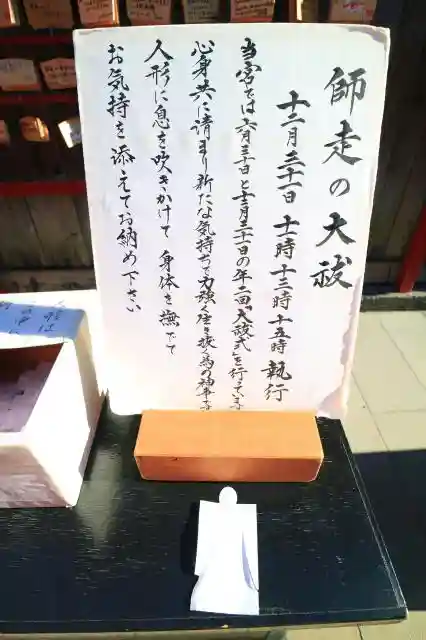 師走の大祓
十二月三十一日 十一時 十三時 十五時 執行
当宮では六月三十日と十二月三十一日の年二回“大祓式”を行っています
心身共に清まり新たな気持ちで力強く生き抜く為の神事です
人形に息を吹きかけて 身体を撫でて
お気持を添えてお納め下さい